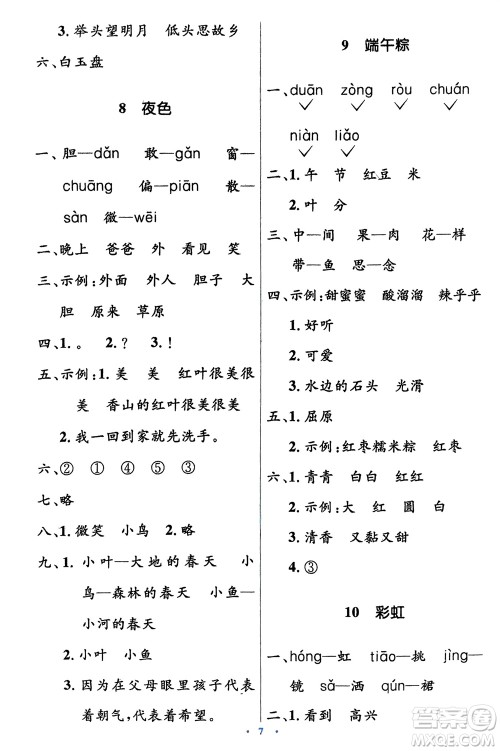 3. 举头望明月　低头思故乡
六、白玉盘
8　夜色
一、胆—dǎn　敢—gǎn　窗—
chuāng　偏—piān　散—
sàn　微—wēi
二、晚上　爸爸　外　看见　笑
三、示例:外面　外人　胆子　大
胆　原来　草原
四、1. 。　2. ?　3. !
五、示例:1. 美　美　红叶很美很
美　香山的红叶很美很美
2. 我一回到家就先洗手。
六、②　①　④　③
七、略
八、1. 微笑　小鸟　2. 略
九、1. 小叶—大地的春天　小
鸟—森林的春天　小鱼—
小河的春天
2. 小叶　小鱼
3. 因为在父母眼里孩子代表
着朝气,代表着希望。
9　端午粽
一、duān　zòng　ròu　chuán
niàn　liǎo
二、1. 午　节　红豆　米
1. 叶　分
三、中—间　果—肉　花—样
带—鱼　思—念
四、示例:甜蜜蜜　酸溜溜　辣乎乎
1. 好听
2. 可爱
3. 水边的石头　光滑
五、1. 屈原
2. 示例:红枣糯米粽　红枣
六、1. 青青　白白　红红
2. 示例:大　红　圆　白
3. 清香　又黏又甜
4. ③
10　彩虹
一、hóng—虹　tiāo—挑　jìng—
镜　sǎ—洒　qún—裙
二、1. 看到　高兴
7
答案圈
MXQE.COM